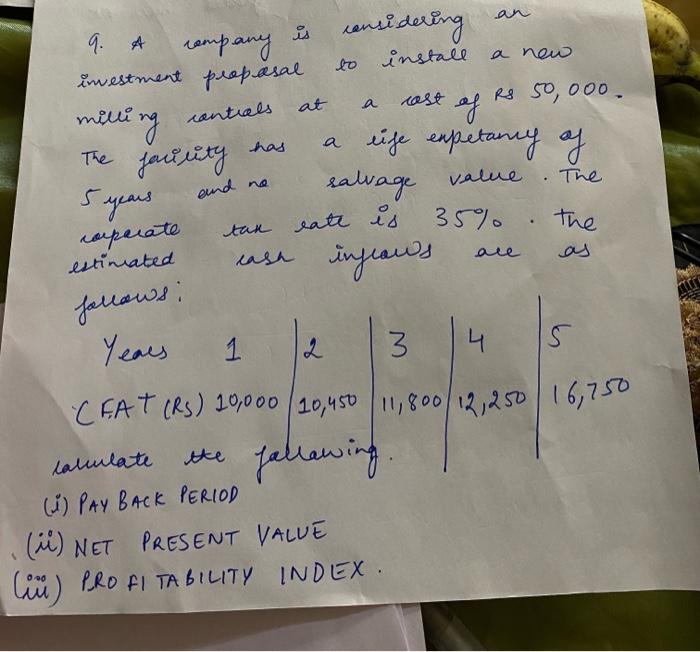 9. A company is considering an
investment proposal to install a new
milling controls at a cost of Rs 50,000.
The facility has a life expetancy of
5 years and no salvage value. The
corporate tax rate is 35%. The
estimated cash inflows are as
follows:
Years 1 2 3 4 5
CFAT (RS) 10,000 10,450 11,800 12,250 16,750
calculate the following.
(i) PAY BACK PERIOD
(ii) NET PRESENT VALUE
(iii) PROFITABILITY INDEX.